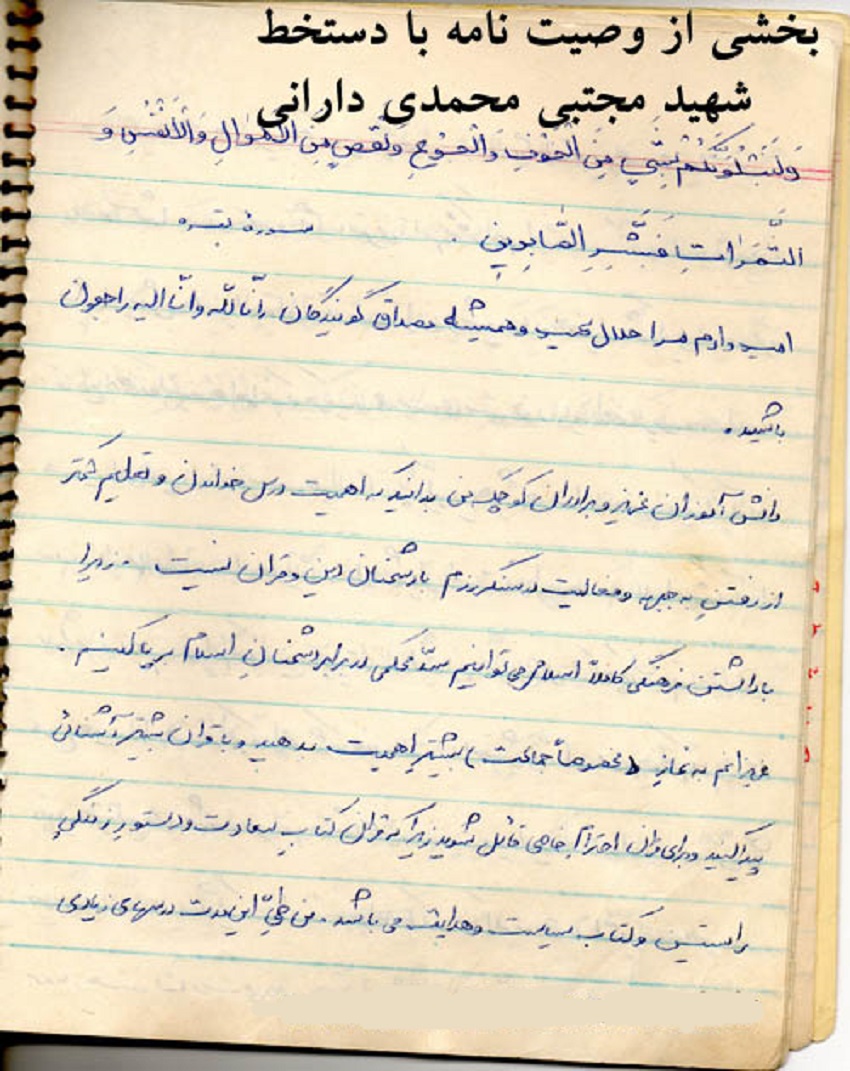 بخشی از وصیت نامه با دستخط
شهید مجتبی محمدی دارانی
وَلَنَبْلُوَنَّکُمْ بِشَیءٍ مِنَ الْخَوفِ وَالْجوْعِ وَنَقصٍ مِنَ الْاَموالِ وَالْاَنْفُسِ وَ
الثَّمَراتِ فَبَشِّرِ الصّابِرینَ . سورة بقره
امیدوارم مرا حلال کنید وهمیشه مصداق گویندگان انّا لله وانّا الیه راجعون
باشید .
دانش آموزان عزیز وبرادران کوچک من بدانید که اهمیت درس خواندن و تعلیم کمتر
از رفتن به جبهه وفعالیت در سنگر رزم با دشمنان دین وقران نیست . زیرا
با داشتن فرهنگی کاملاً اسلامی می توانیم سدّ محکمی در برابر دشمنان اسلام برپا کنیم .
عزیزانم به نماز ( مخصوصاً جماعت ) بیشتر اهمیت بدهید و با قران بیشتر آشنائی
پیدا کنید وبرای قران احترام خاصی قائل شوید زیرا که قران کتاب سعادت ودستور زندگی
راستین وکتاب سیاست وهدایت می باشد . من طیّ این مدت درسهای زیادی